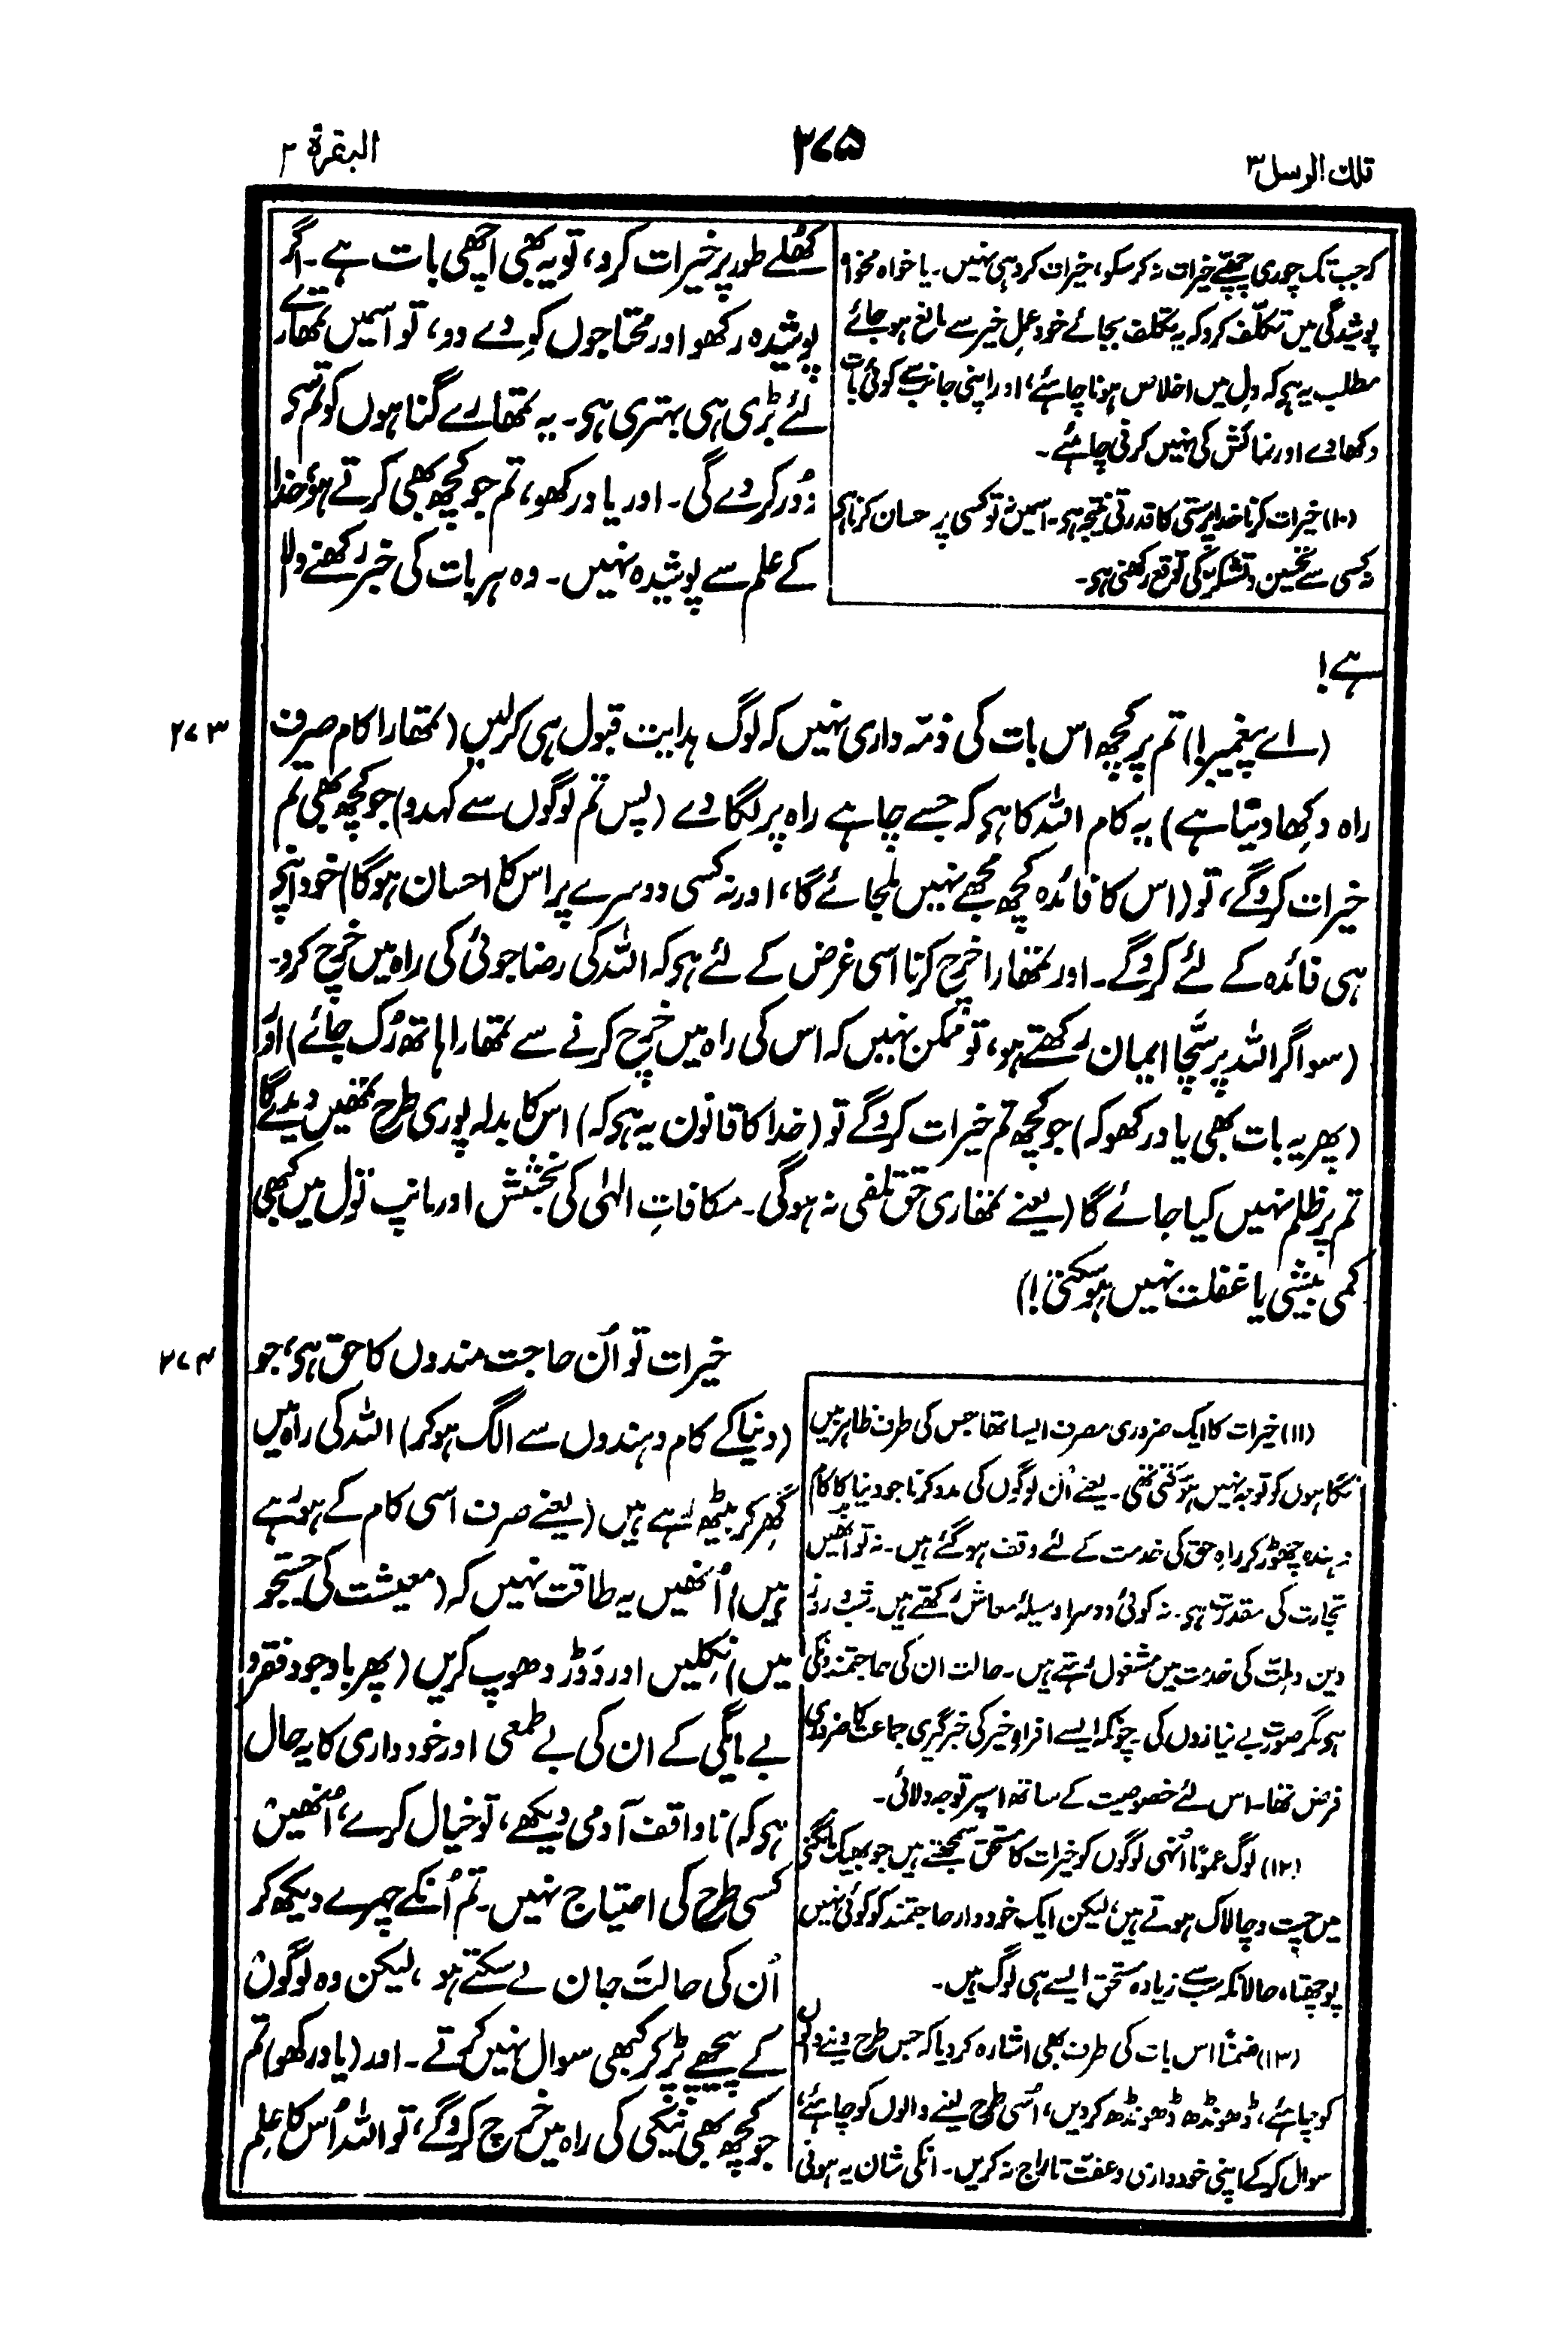 تلک الرسل ۳
۲۷۵
البقرۃ ۲
کہ جب تک چوری چھپے خیرات نہ کرسکو، خیرات کرو ہی نہیں۔ یا خواہ مخواہ
پوشیدگی میں تکلّف کرو کہ یہ تکلف بجائے خود عمل خیر سے مانع ہو جائے
مطلب یہ ہو کہ دل میں اخلاص ہونا چاہئے، اور اپنی جانب سے کوئی بات
دکھاوے اور نمائش کی نہیں کرنی چاہئے۔
(۱۰) خیرات کرنا خدا پرستی کا قدرتی نتیجہ ہو۔ اسمیں نہ تو کسی پر حسان کرنا ہو
نہ کسی سے تحسین و تشکر کی توقع رکھنی ہو۔
کھلے طور پر خیرات کرو، تو یہ بھی اچھی بات ہے۔ اگر
پوشیدہ رکھو اور محتاجوں کو دے دو، تو اسمیں تمھارے
لئے بڑی ہی بہتری ہو۔ یہ تمھارے گناہوں کو تم سے
دُور کر دے گی۔ اور یاد رکھو، تم جو کچھ بھی کرتے ہو، خدا
کے علم سے پوشیدہ نہیں۔ وہ ہر بات کی خبر رکھنے والا
ہے!
۲۷۳
(اے پیغمبر!) تم پر کچھ اس بات کی ذمّہ داری نہیں کہ لوگ ہدایت قبول ہی کرلیں (تمھارا کام صرف
راہ دکھا دینا ہے) یہ کام اللہ کا ہو کہ جسے چاہے راہ پر لگا دے (پس تم لوگوں سے کہدو) جو کچھ بھی تم
خیرات کروگے، تو (اس کا فائدہ کچھ مجھے نہیں ملجائے گا، اور نہ کسی دوسرے پر اس کا احسان ہوگا) خود اپنے
ہی فائدہ کے لئے کروگے۔ اور تمھارا خرچ کرنا اسی غرض کے لئے ہو کہ اللہ کی رضا جوئی کی راہ میں خرچ کرو۔
(سو اگر اللہ پر سچّا ایمان رکھتے ہو، تو ممکن نہیں کہ اس کی راہ میں خرچ کرنے سے تمھارا ہاتھ رُک جائے) اور
(پھر یہ بات بھی یاد رکھو کہ) جو کچھ تم خیرات کروگے تو (خدا کا قانون یہ ہو کہ) اس کا بدلہ پوری طرح تمھیں دیدیگا
تم پر ظلم نہیں کیا جائے گا (یعنے تمھاری حق تلفی نہ ہوگی۔ مکافاتِ الہٰی کی بخشش اور ماپ تول میں کبھی
کمی بیشی یا غفلت نہیں ہو سکتی!)
۲۷۴
خیرات تو اُن حاجت مندوں کا حق ہو، جو
(دنیا کے کام دہندوں سے الگ ہو کر) اللہ کی راہ میں
گھر کر بیٹھ رہے ہیں (یعنے صرف اسی کام کے ہو رہے
ہیں) اُنھیں یہ طاقت نہیں کہ (معیشت کی جستجو
میں) نکلیں اور دَوڑ دھوپ کریں (پھر باوجود فقر و
بے مایگی کے ان کی بے طمعی اور خود داری کا یہ حال
ہو کہ) ناواقف آدمی دیکھے، تو خیال کرے، اُنھیں
کسی طرح کی احتیاج نہیں۔ تم اُنکے چہرے دیکھ کر
اُن کی حالت جان لے سکتے ہو، لیکن وہ لوگوں
کے پیچھے پڑ کر کبھی سوال نہیں کرتے۔ اور (یاد رکھو) تم
جو کچھ بھی نیکی کی راہ میں خرچ کروگے، تو اللہ اُس کا علم
(۱۱) خیرات کا ایک ضروری مصرف ایسا تھا جس کی طرف ظاہر بیں
نگاہوں کو توجہ نہیں ہو سکتی تھی۔ یعنے اُن لوگوں کی مدد کرنا جو دنیا کا کام
دہندہ چھوڑ کر راہِ حق کی خدمت کے لئے وقف ہو گئے ہیں۔ نہ تو انھیں
تجارت کی مقدرت ہو۔ نہ کوئی دوسرا وسیلۂ معاش رکھتے ہیں۔ شب و روز
دین و ملت کی خدمت میں مشغول رہتے ہیں۔ حالت ان کی حاجتمندونکی
ہو مگر صورت بے نیازوں کی۔ چونکہ ایسے افراد خیر کی خبر گیری جماعت کا ضروری
فرض تھا۔ اس لئے خصوصیت کے ساتھ اسپر توجہ دلائی۔
(۱۲) لوگ عموماً اُنہی لوگوں کو خیرات کا مستحق سمجھتے ہیں جو بھیک مانگنے
میں چست و چالاک ہوتے ہیں، لیکن ایک خود دار حاجتمند کو کوئی نہیں
پوچھتا، حالانکہ سب سے زیادہ مستحق ایسے ہی لوگ ہیں۔
(۱۳) ضمناً اس بات کی طرف بھی اشارہ کر دیا کہ جس طرح دینے والوں
کو چاہئے، ڈھونڈھ ڈھونڈھ کر دیں، اُسی طرح لینے والوں کو چاہئے،
سوال کر کے اپنی خود داری و عفت تاراج نہ کریں۔ انکی شان یہ ہونی